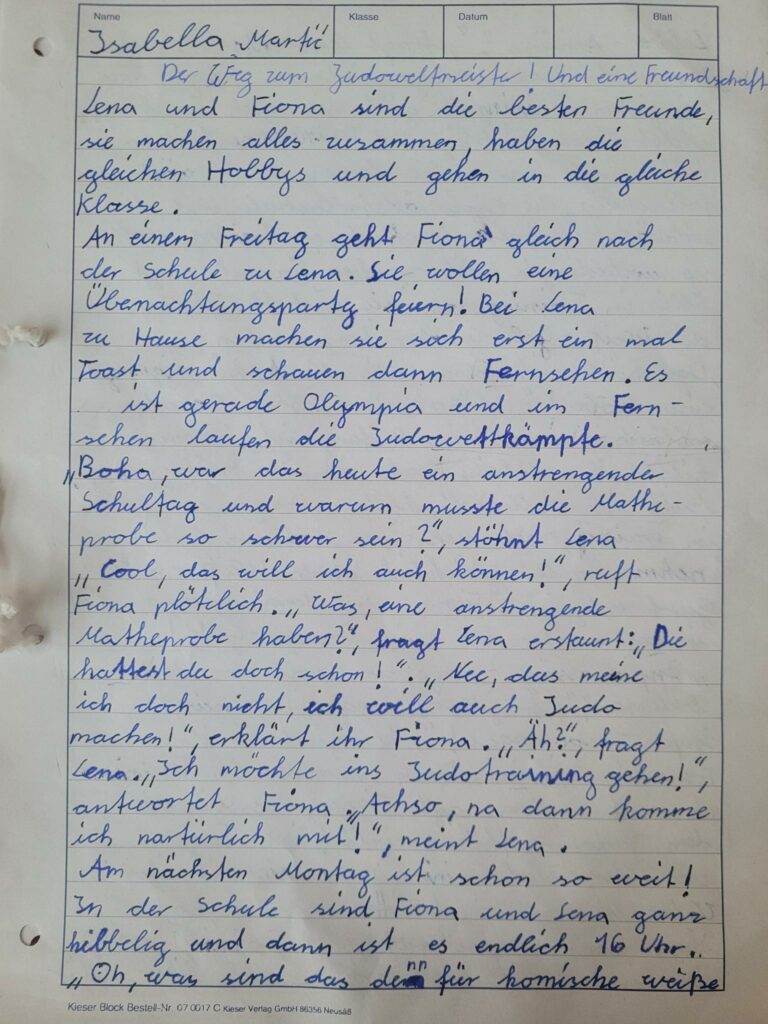 Name
Klasse
Datum
Blatt
Isabella Martić
Der Weg zum Judoweltmeister! Und eine Freundschaft
Lena und Fiona sind die besten Freunde,
sie machen alles zusammen, haben die
gleichen Hobbys und gehen in die gleiche
Klasse.
An einem Freitag geht Fiona gleich nach
der Schule zu Lena. Sie wollen eine
Übenachtungsparty feiern! Bei Lena
zu Hause machen sie sich erst ein mal
Toast und schauen dann Fernsehen. Es
ist gerade Olympia und im Fern-
sehen laufen die Judowettkämpfe.
„Boha, war das heute ein anstrengender
Schultag und warum musste die Mathe-
probe so schwer sein?", stöhnt Lena
„Cool, das will ich auch können!", ruft
Fiona plötzlich. „Was, eine anstrengende
Matheprobe haben?", fragt Lena erstaunt: „Die
hattest du doch schon!". „Nee, das meine
ich doch nicht, ich will auch Judo
machen!", erklärt ihr Fiona. „Äh?", fragt
Lena. „Ich möchte ins Judotraining gehen!",
antwortet Fiona. „Achso, na dann komme
ich nartürlich mit!", meint Lena.
Am nächsten Montag ist schon so weit!
In der Schule sind Fiona und Lena ganz
hibbelig und dann ist es endlich 16 Uhr..
„Oh, was sind das denn für komische weiße
Kieser Block Bestell-Nr. 07 0017 C Kieser Verlag GmbH 86356 Neusäß